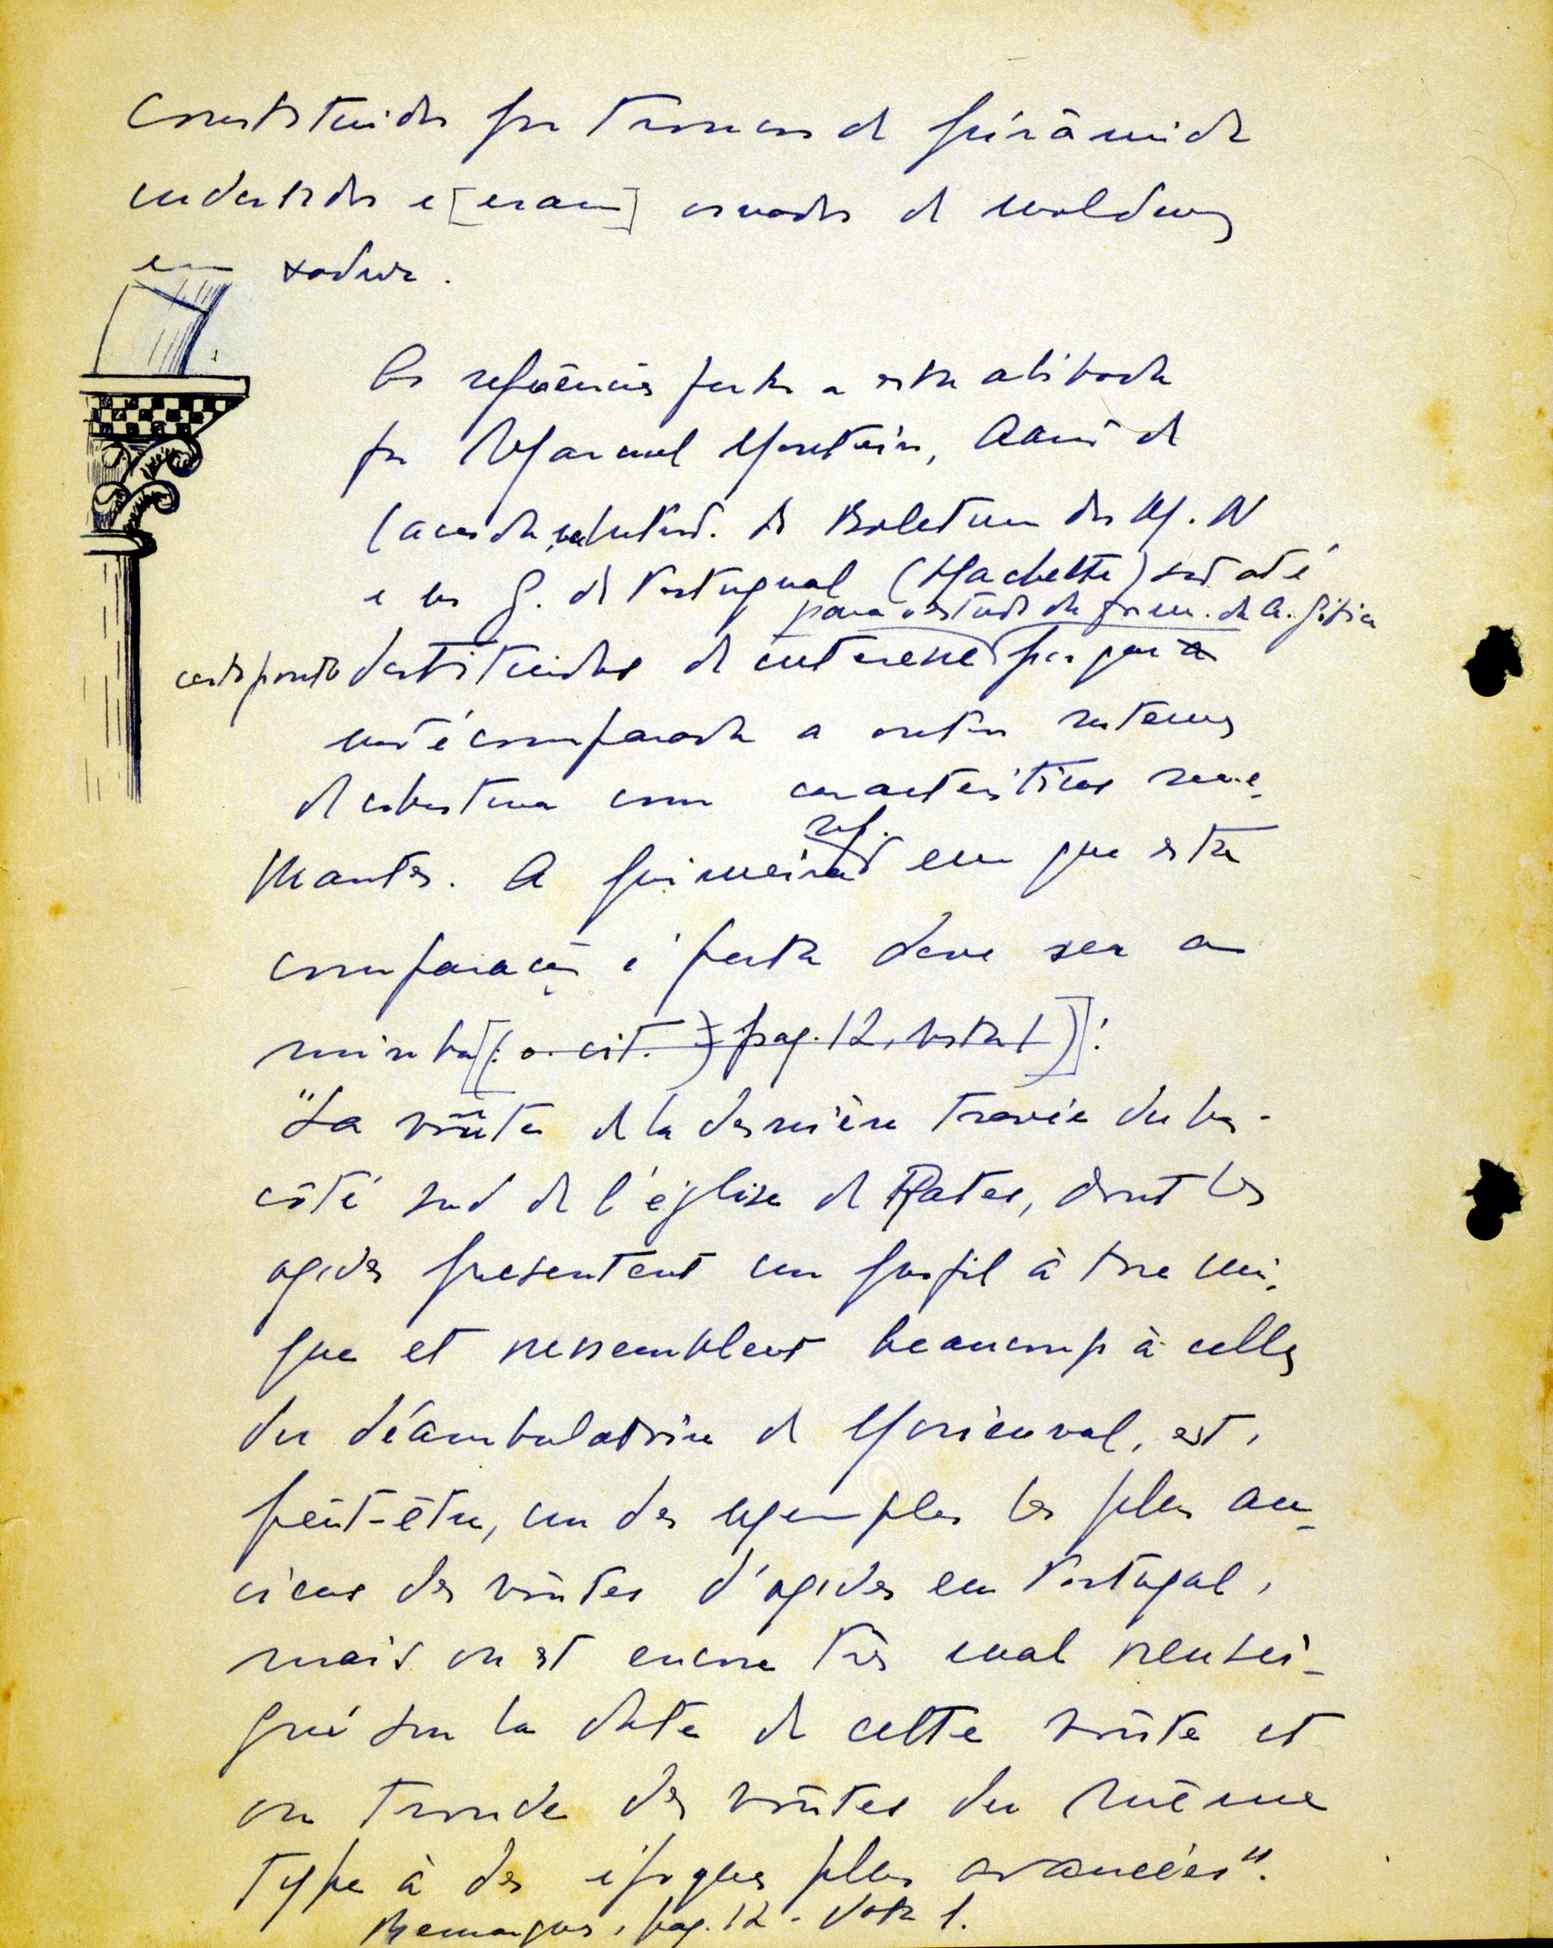 Constituidos por troncos de pirâmide
invertidos e [eram] ornados de molduras
em xadrez.
As referências feitas a esta abobada
por Manuel Monteiro, Aarão de
Lacerda, Boletim dos M. N
e os G. de Portugal (Hachette) são até
para o estudo da da a. gótica
certo ponto destituidas de interesse porque
não é comparada a outros sistemas
de cobertura com caracteristicas seme-
lhantes. A primeira ref. em que esta
comparação é feita deve ser a
minha [(o. cit.) pag. 12, nota 1)]:
"La voûte de la dernière travée du bas-
côté sud de l'église de Rates, dont les
ogives presentent un profil à tore uni-
que et ressemblent beaucoup à celles
du déambulatoire de Morienval, est,
peût-être, un des exemples les plus an-
ciens des voûtes d'ogives en Portugal,
mais on est encore très mal rensei-
gné sur la date de cette voûte et
on trouve des voûtes du même
type à des époques plus avancées".
Remarques, pag. 12 - Nota 1.